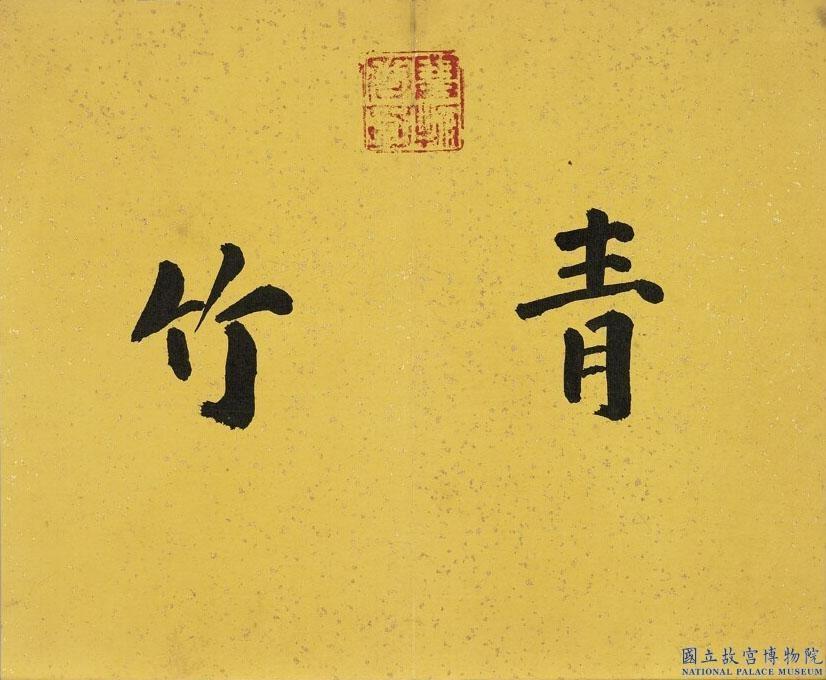 青竹
國立故宮博物院
NATIONAL PALACE MUSEUM